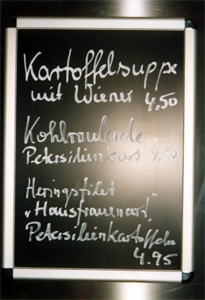 Kartoffelsuppe
mit Wiener 4,50
Kohlroulade,
Heringsfilet
„Hausfrauenart"
Petersilienkartoffeln
4.95